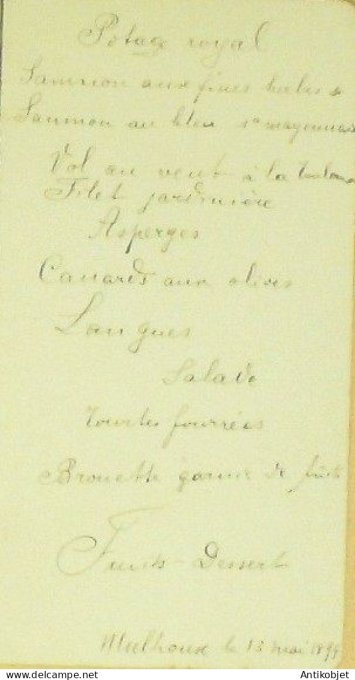 Potage royal
Saumon aux fines herbes
Saumon au bleu mayonnaise
Vol au vent à la
Filet jardinière
Asperges
Canards aux olives
Langues
Salade
Tourtes fourrées
Brouette garnie de
Fruits - Dessert
Mulhouse le 13 mai
www.delcampe.net
Antikobjet